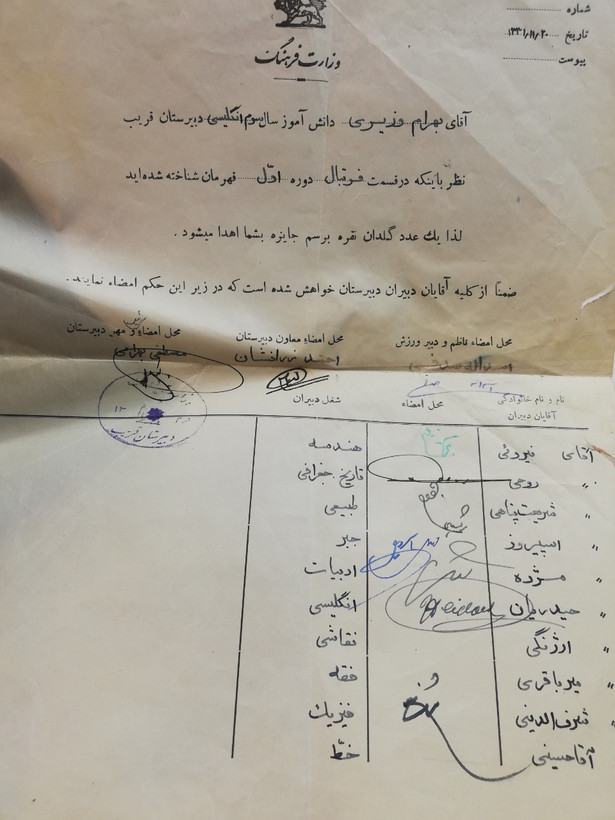 شماره
تاریخ ۱۳۳۱/۱۱/۲۰
پیوست
وزارت فرهنگ
آقای بهرام وزیری دانش آموز سال سوم انگلیسی دبیرستان قریب
نظر باینکه در قسمت فوتبال دوره اوّل قهرمان شناخته شده‌اید
لذا یك عدد گلدان نقره برسم جایزه بشما اهدا میشود .
ضمناً از کلیه آقایان دبیران دبیرستان خواهش شده است که در زیر این حکم امضاء نمایند.
محل امضاء ناظم و دبیر ورزش محل امضاء معاون دبیرستان محل امضاء و مهر دبیرستان
رئیس
احمد زرافشان مصطفی بهرامی
نام و نام خانوادگی محل امضاء شغل دبیران
آقایان دبیران
دبیرستان قریب
آقای فیروئی هندسه
〃 روحی تاریخ.جغرافی
〃 شریعت‌پناهی طبیعی
〃 اسپیروز جبر
〃 مژده ادبیات
〃 حیدریان Heidari انگلیسی
〃 ارژنگی نقاشی
〃 میرباقری فقه
〃 شرف‌الدینی فیزیك
آقاحسینی خطّ